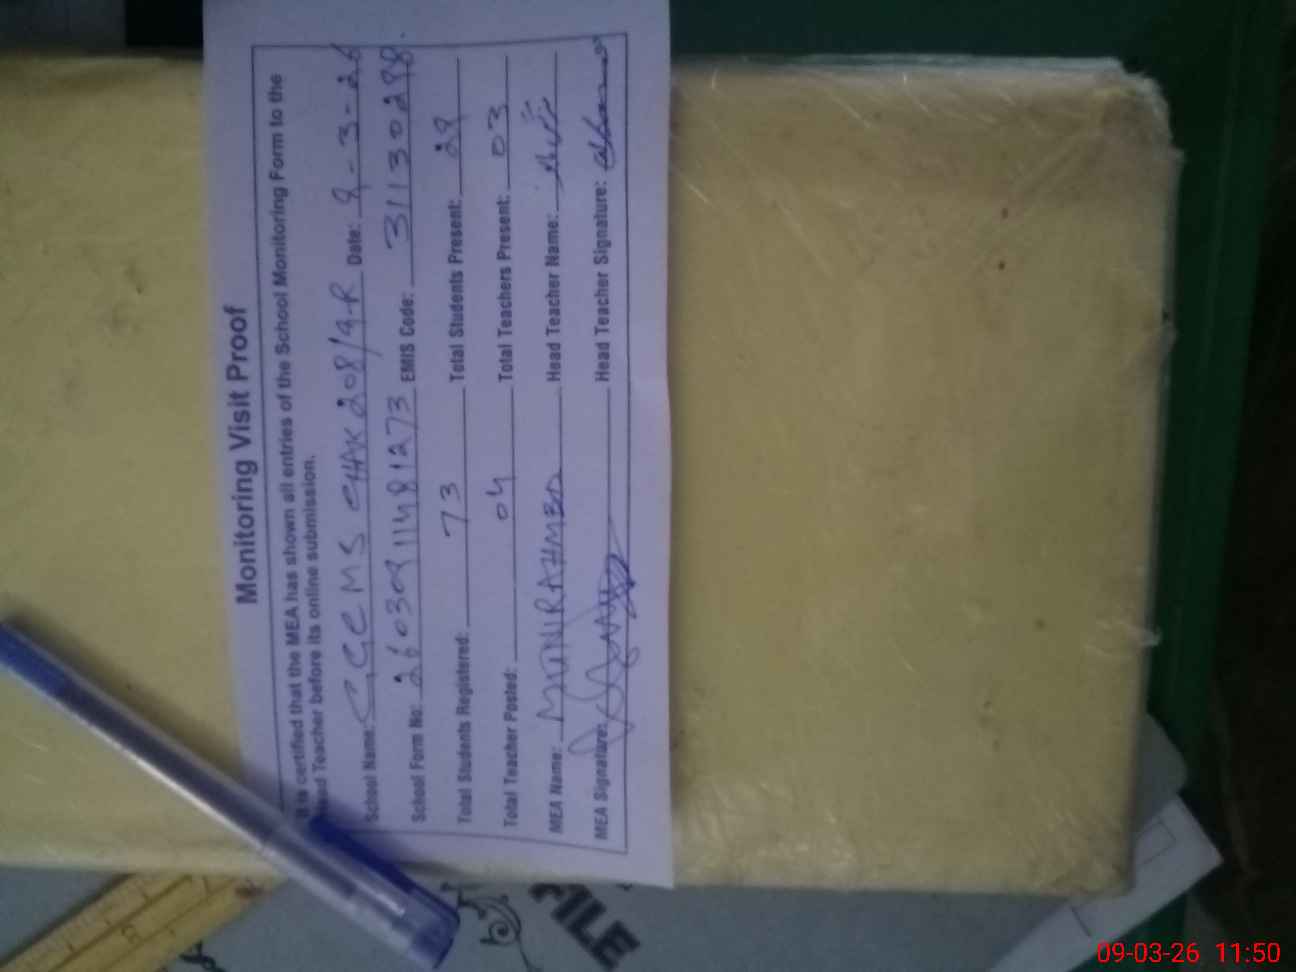 Monitoring Visit Proof
It is certified that the MEA has shown all entries of the School Monitoring Form to the
Head Teacher before its online submission.
School Name: GGCMS CHAK 208/9-R Date: 9-3-26
School Form No: 26030911481273 EMIS Code: 31130298
Total Students Registered: 73 Total Students Present: 29
Total Teacher Posted: 04 Total Teachers Present: 03
MEA Name: MUNIR AHMED Head Teacher Name:
MEA Signature: Head Teacher Signature:
FILE
09-03-26 11:50